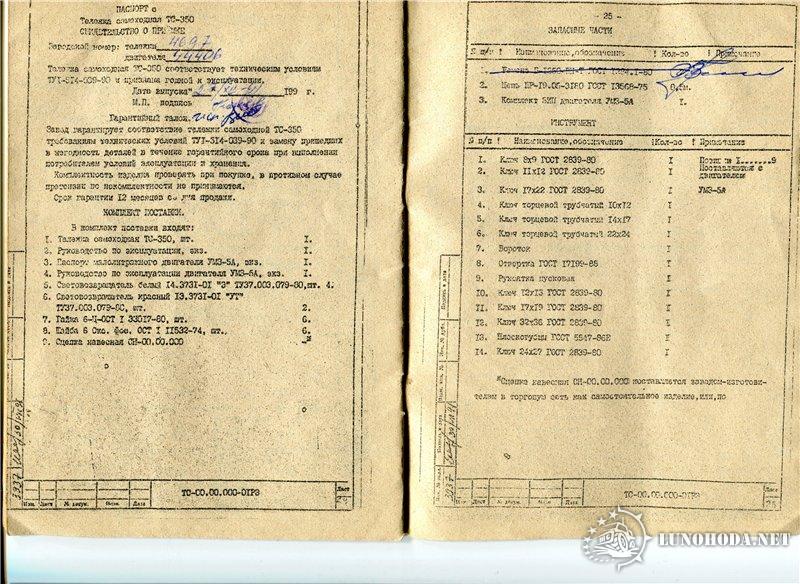 ПАСПОРТ
Тележка самоходная ТС-350
СВИДЕТЕЛЬСТВО О ПРИЕМКЕ
Заводской номер: тележки 4697
двигателя 44406
Тележка самоходная ТС-350 соответствует техническим условиям
ТУ1-514-039-90 и признана годной к эксплуатации.
Дата выпуска 199 г.
М.П. подпись
Гарантийный талон.
Завод гарантирует соответствие тележки самоходной ТС-350
требованиям технических условий ТУ1-514-039-90 и замену пришедших
в негодность деталей в течение гарантийного срока при выполнении
потребителем условий эксплуатации и хранения.
Комплектность изделия проверять при покупке, в противном случае
претензии по некомплектности не принимаются.
Срок гарантии 12 месяцев со дня продажи.
КОМПЛЕКТ ПОСТАВКИ.
В комплект поставки входят:
1. Тележка самоходная ТС-350, шт. 1.
2. Руководство по эксплуатации, экз. 1.
3. Паспорт малолитражного двигателя УМЗ-5А, экз. 1.
4. Руководство по эксплуатации двигателя УМЗ-5А, экз. 1.
5. Световозвращатель белый 14.3731-01 "З" ТУ37.003.079-80, шт. 4.
6. Световозвращатель красный 13.3731-01 "УТ"
ТУ37.003.079-80, шт. 2.
7. Гайка 6-Ц-ОСТ 1 33017-80, шт. 6.
8. Шайба 6 Окс. фос. ОСТ 1 11532-74, шт. 6.
9. Сцепка навесная СН-00.00.000 -*
3937
Изм. Лист № докум. Подп. Дата
ТС-00.00.000-01РЭ
Лист
- 25 -
ЗАПАСНЫЕ ЧАСТИ
№ п/п Наименование, обозначение Кол-во Примечание
1.
2. Цепь ПР-19.05-3180 ГОСТ 13568-75
3. Комплект ЗИП двигателя УМЗ-5А 1.
ИНСТРУМЕНТ
№ п/п Наименование, обозначение Кол-во Примечание
1. Ключ 8х9 ГОСТ 2839-80 1 Позиции 1......9
2. Ключ 11х12 ГОСТ 2839-80 1 Поставляются с
двигателем
3. Ключ 17х22 ГОСТ 2839-80 1 УМЗ-5А
4. Ключ торцевой трубчатый 10х12 1
5. Ключ торцевой трубчатый 14х17 1
6. Ключ торцевой трубчатый 22х24 1
7. Вороток 1
8. Отвертка ГОСТ 17199-88 1
9. Рукоятка пусковая 1
10. Ключ 12х13 ГОСТ 2839-80 1
11. Ключ 17х19 ГОСТ 2839-80 1
12. Ключ 32х36 ГОСТ 2839-80 1
13. Плоскогубцы ГОСТ 5547-86Е 1
14. Ключ 24х27 ГОСТ 2839-80 1
*Сцепка навесная СН-00.00.000 поставляется заводом-изготови-
телем в торговую сеть как самостоятельное изделие, или, по
3937
Изм. Лист № докум. Подп. Дата
ТС-00.00.000-01РЭ
Лист
25
LUNOHODA.NET